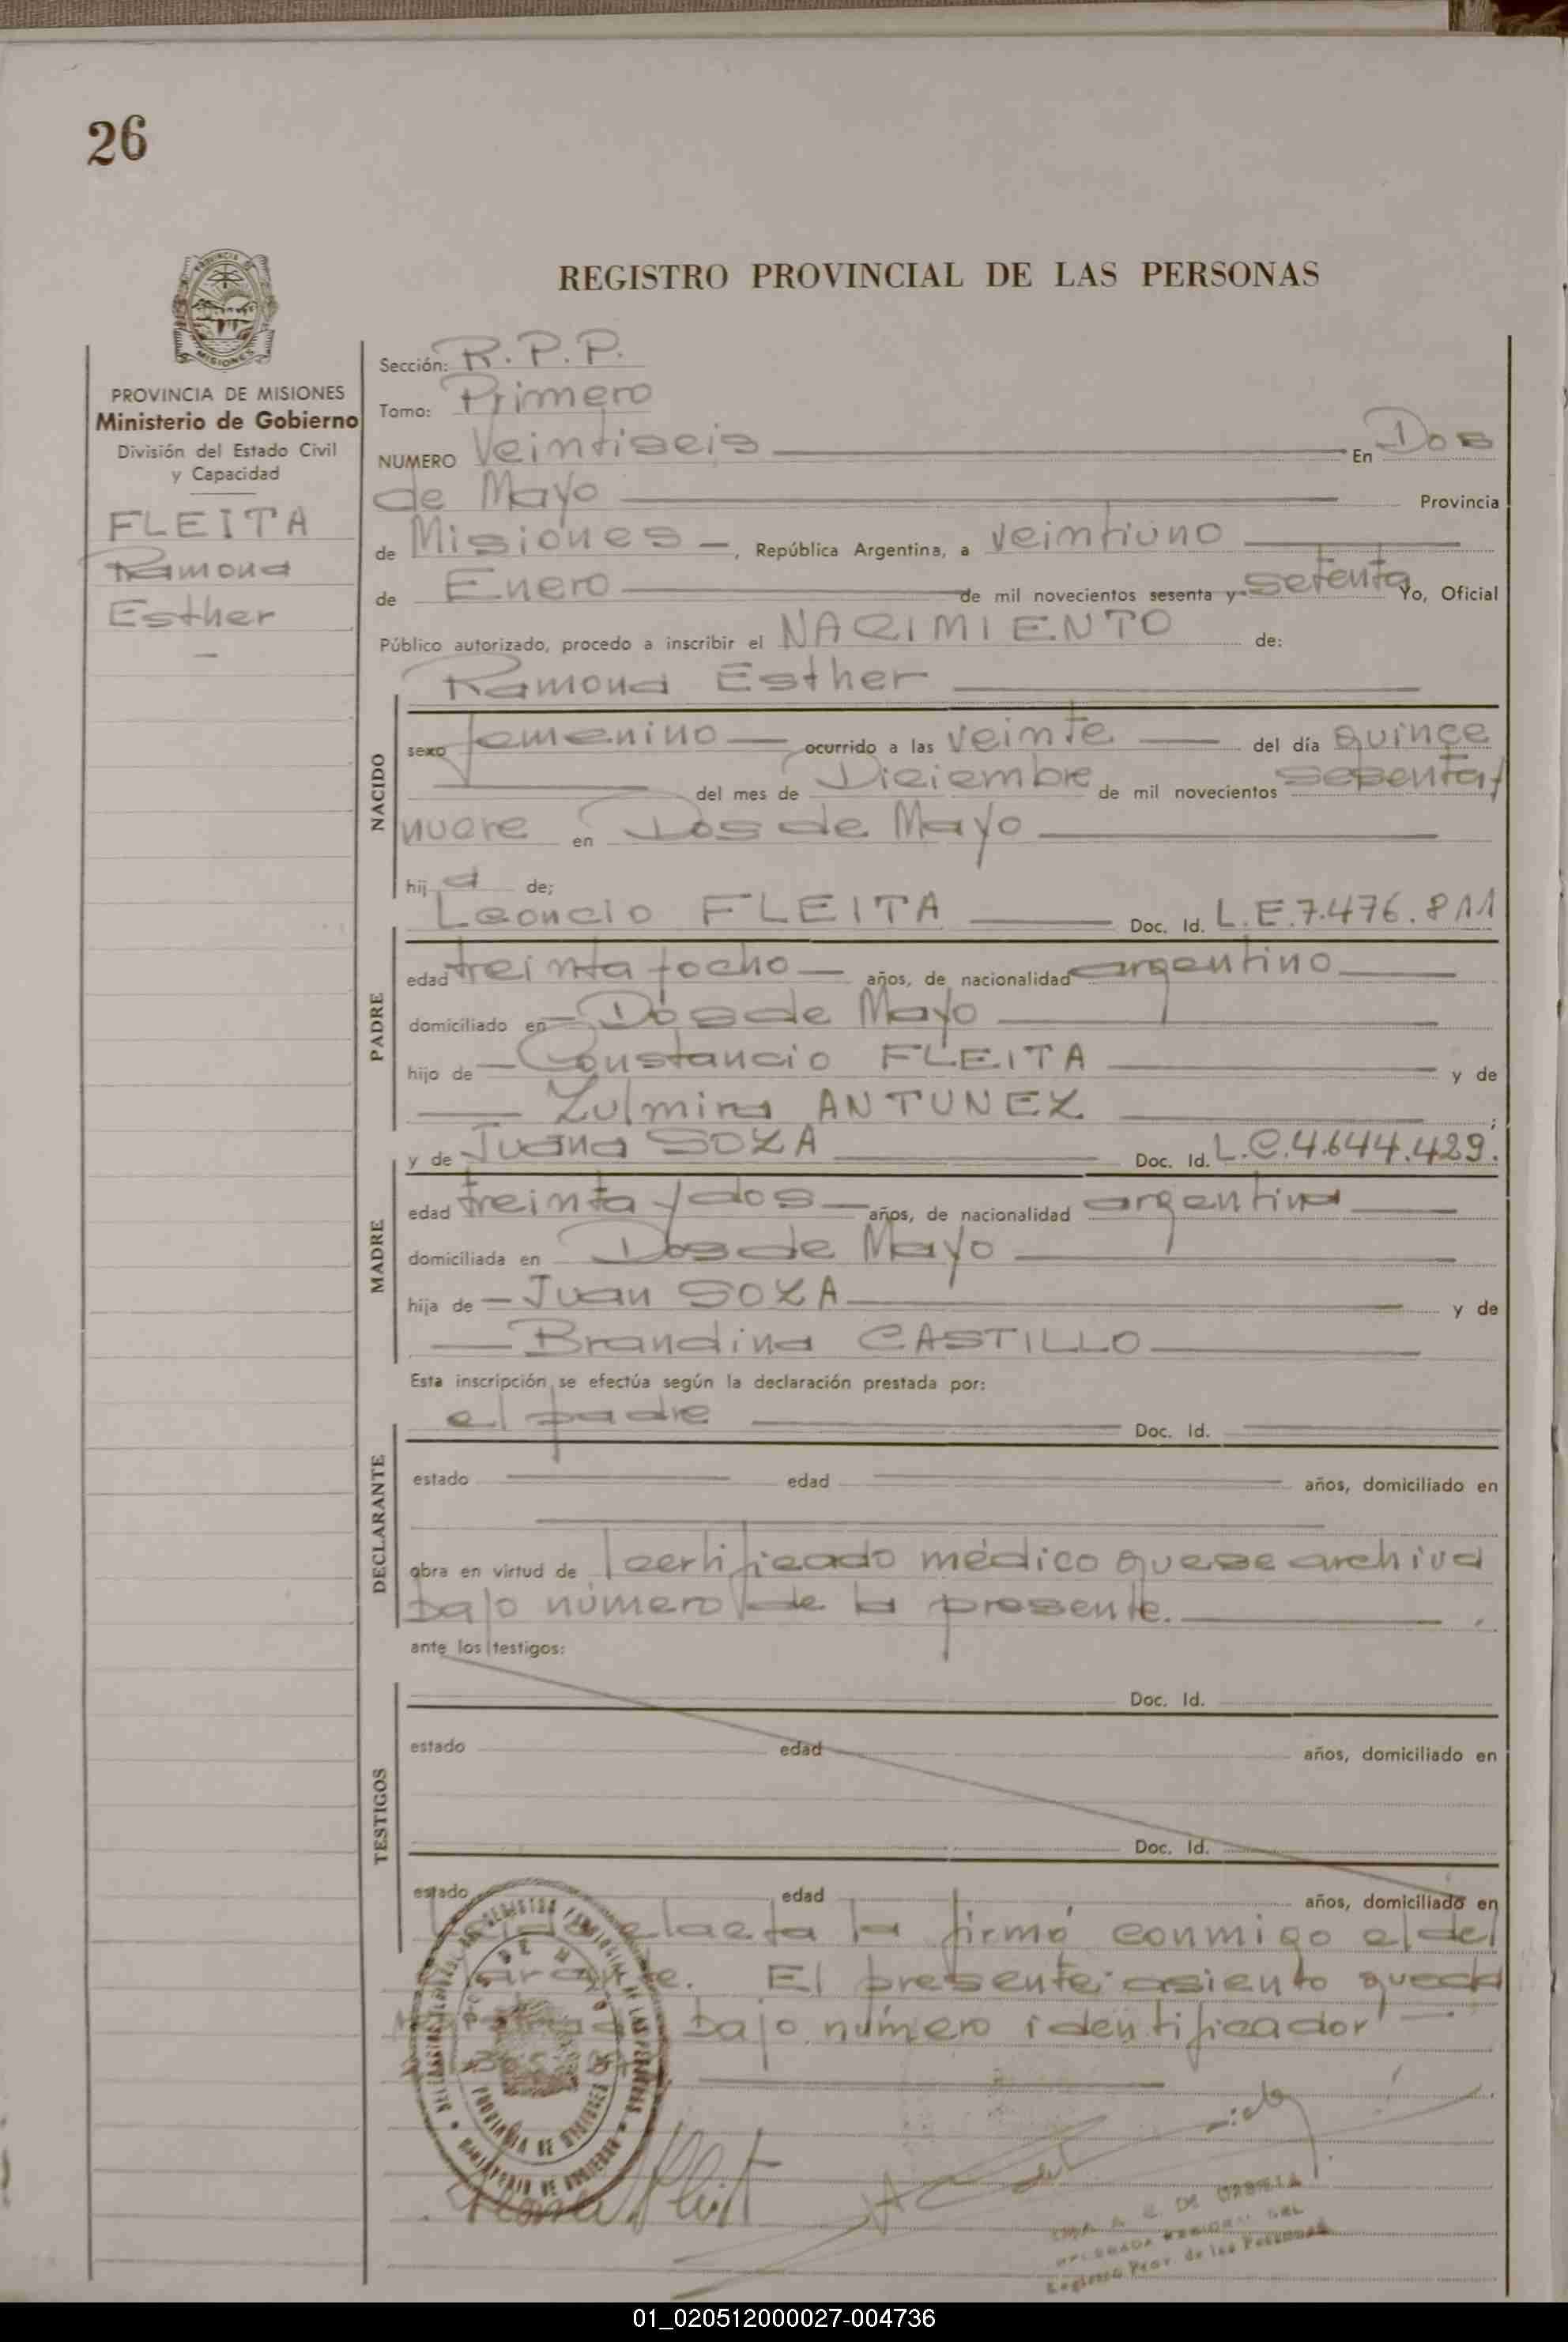 26
REGISTRO PROVINCIAL DE LAS PERSONAS
PROVINCIA DE MISIONES
Ministerio de Gobierno
División del Estado Civil
y Capacidad
FLEITA
Ramona
Esther
Sección: R.P.P.
Tomo: Primero
NUMERO Veintiseis En Dos
de Mayo Provincia
de Misiones, República Argentina, a veintiuno
de Enero de mil novecientos sesenta y setenta Yo, Oficial
Público autorizado, procedo a inscribir el NACIMIENTO de:
Ramona Esther
NACIDO
sexo femenino ocurrido a las veinte del día quince
del mes de Diciembre de mil novecientos sesenta y
nueve en Dos de Mayo
hija de;
Leoncio FLEITA Doc. Id. L.E. 7.476.811
PADRE
edad treinta y ocho años, de nacionalidad argentino
domiciliado en Dos de Mayo
hijo de Constancio FLEITA y de
Zulmira ANTUNEZ
y de Juana SOZA Doc. Id. L.C. 4.644.429.
MADRE
edad treinta y dos años, de nacionalidad argentina
domiciliada en Dos de Mayo
hija de Juan SOZA y de
Brandina CASTILLO
Esta inscripción se efectúa según la declaración prestada por:
el padre Doc. Id.
DECLARANTE
estado edad años, domiciliado en
obra en virtud de certificado médico que se archiva
bajo número de la presente.
ante los testigos:
Doc. Id.
TESTIGOS
estado edad años, domiciliado en
Doc. Id.
estado edad años, domiciliado en
el acta la firmó conmigo el de
clarante. El presente asiento queda
bajo número identificador
DE URBSIA
Registro Prov. de las Personas
01_020512000027-004736